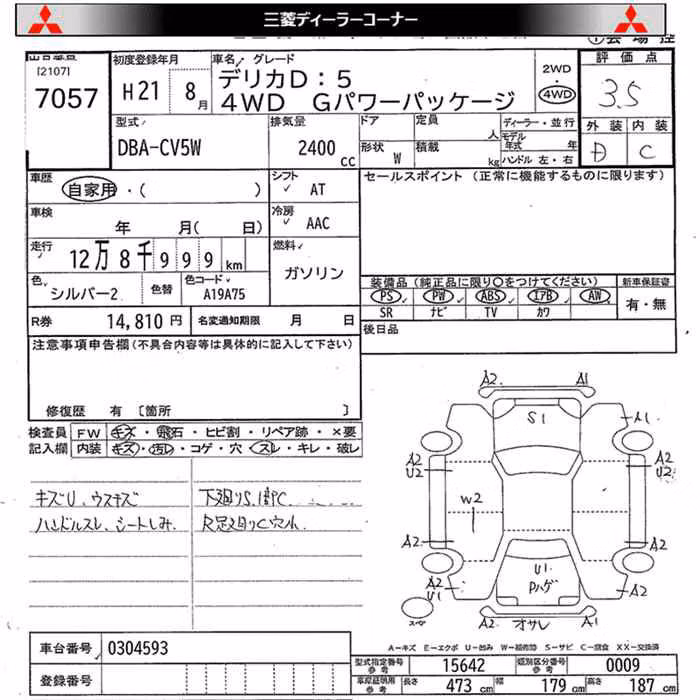 三菱ディーラーコーナー
[2107]
7057
初度登録年月
H21 8月
車名/ グレード
デリカD：5
4WD Gパワーパッケージ
2WD
・
4WD
評価点
3.5
外装 内装
D C
型式
DBA-CV5W
排気量
2400 cc
ドア
形状 W
定員 人
積載 kg
ディーラー・並行
モデル年式 年
ハンドル 左・右
車歴
自家用・( )
シフト
AT
セールスポイント (正常に機能するものに限ります)
車検
年 月( 日)
冷房
AAC
走行
12万8千999 km
燃料
ガソリン
色
シルバー2
色替
色コード
A19A75
装備品 (純正品に限り○をつけてください)
新車保証書
PS PW ABS エアB AW
SR ナビ TV カワ
有・無
R券 14,810 円
名変通知期限 月 日
後日品
注意事項申告欄 (不具合内容等は具体的に記入して下さい)
修復歴 有 [箇所 ]
検査員 FW キズ・飛石・ヒビ割・リペア跡・×要
記入欄 内装 キズ・汚レ・コゲ・穴・スレ・キレ・破レ
キズU、ウスキズ
ハンドルスレ、シートしみ、
下廻りS、
A2 A1
S1
A1
A2
U2
A2
U2
W2
A2
A2
A2
U1
U1
Pハゲ
A2
スペアー
A2 オサレ A1
A－キズ E－エクボ U－凹み W－補修跡 S－サビ C－腐食 XX－交換済
車台番号 0304593
登録番号
型式指定番号 参考 15642
類別区分番号 参考 0009
車庫証明用 参考 長さ 473 cm 幅 179 cm 高さ 187 cm